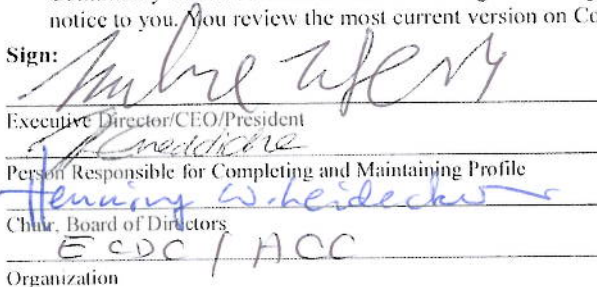 notice to you. You review the most current version on Co
Sign:
Executive Director/CEO/President
Person Responsible for Completing and Maintaining Profile
Henning W. Leidecker
Chair, Board of Directors
ECDC / ACC
Organization